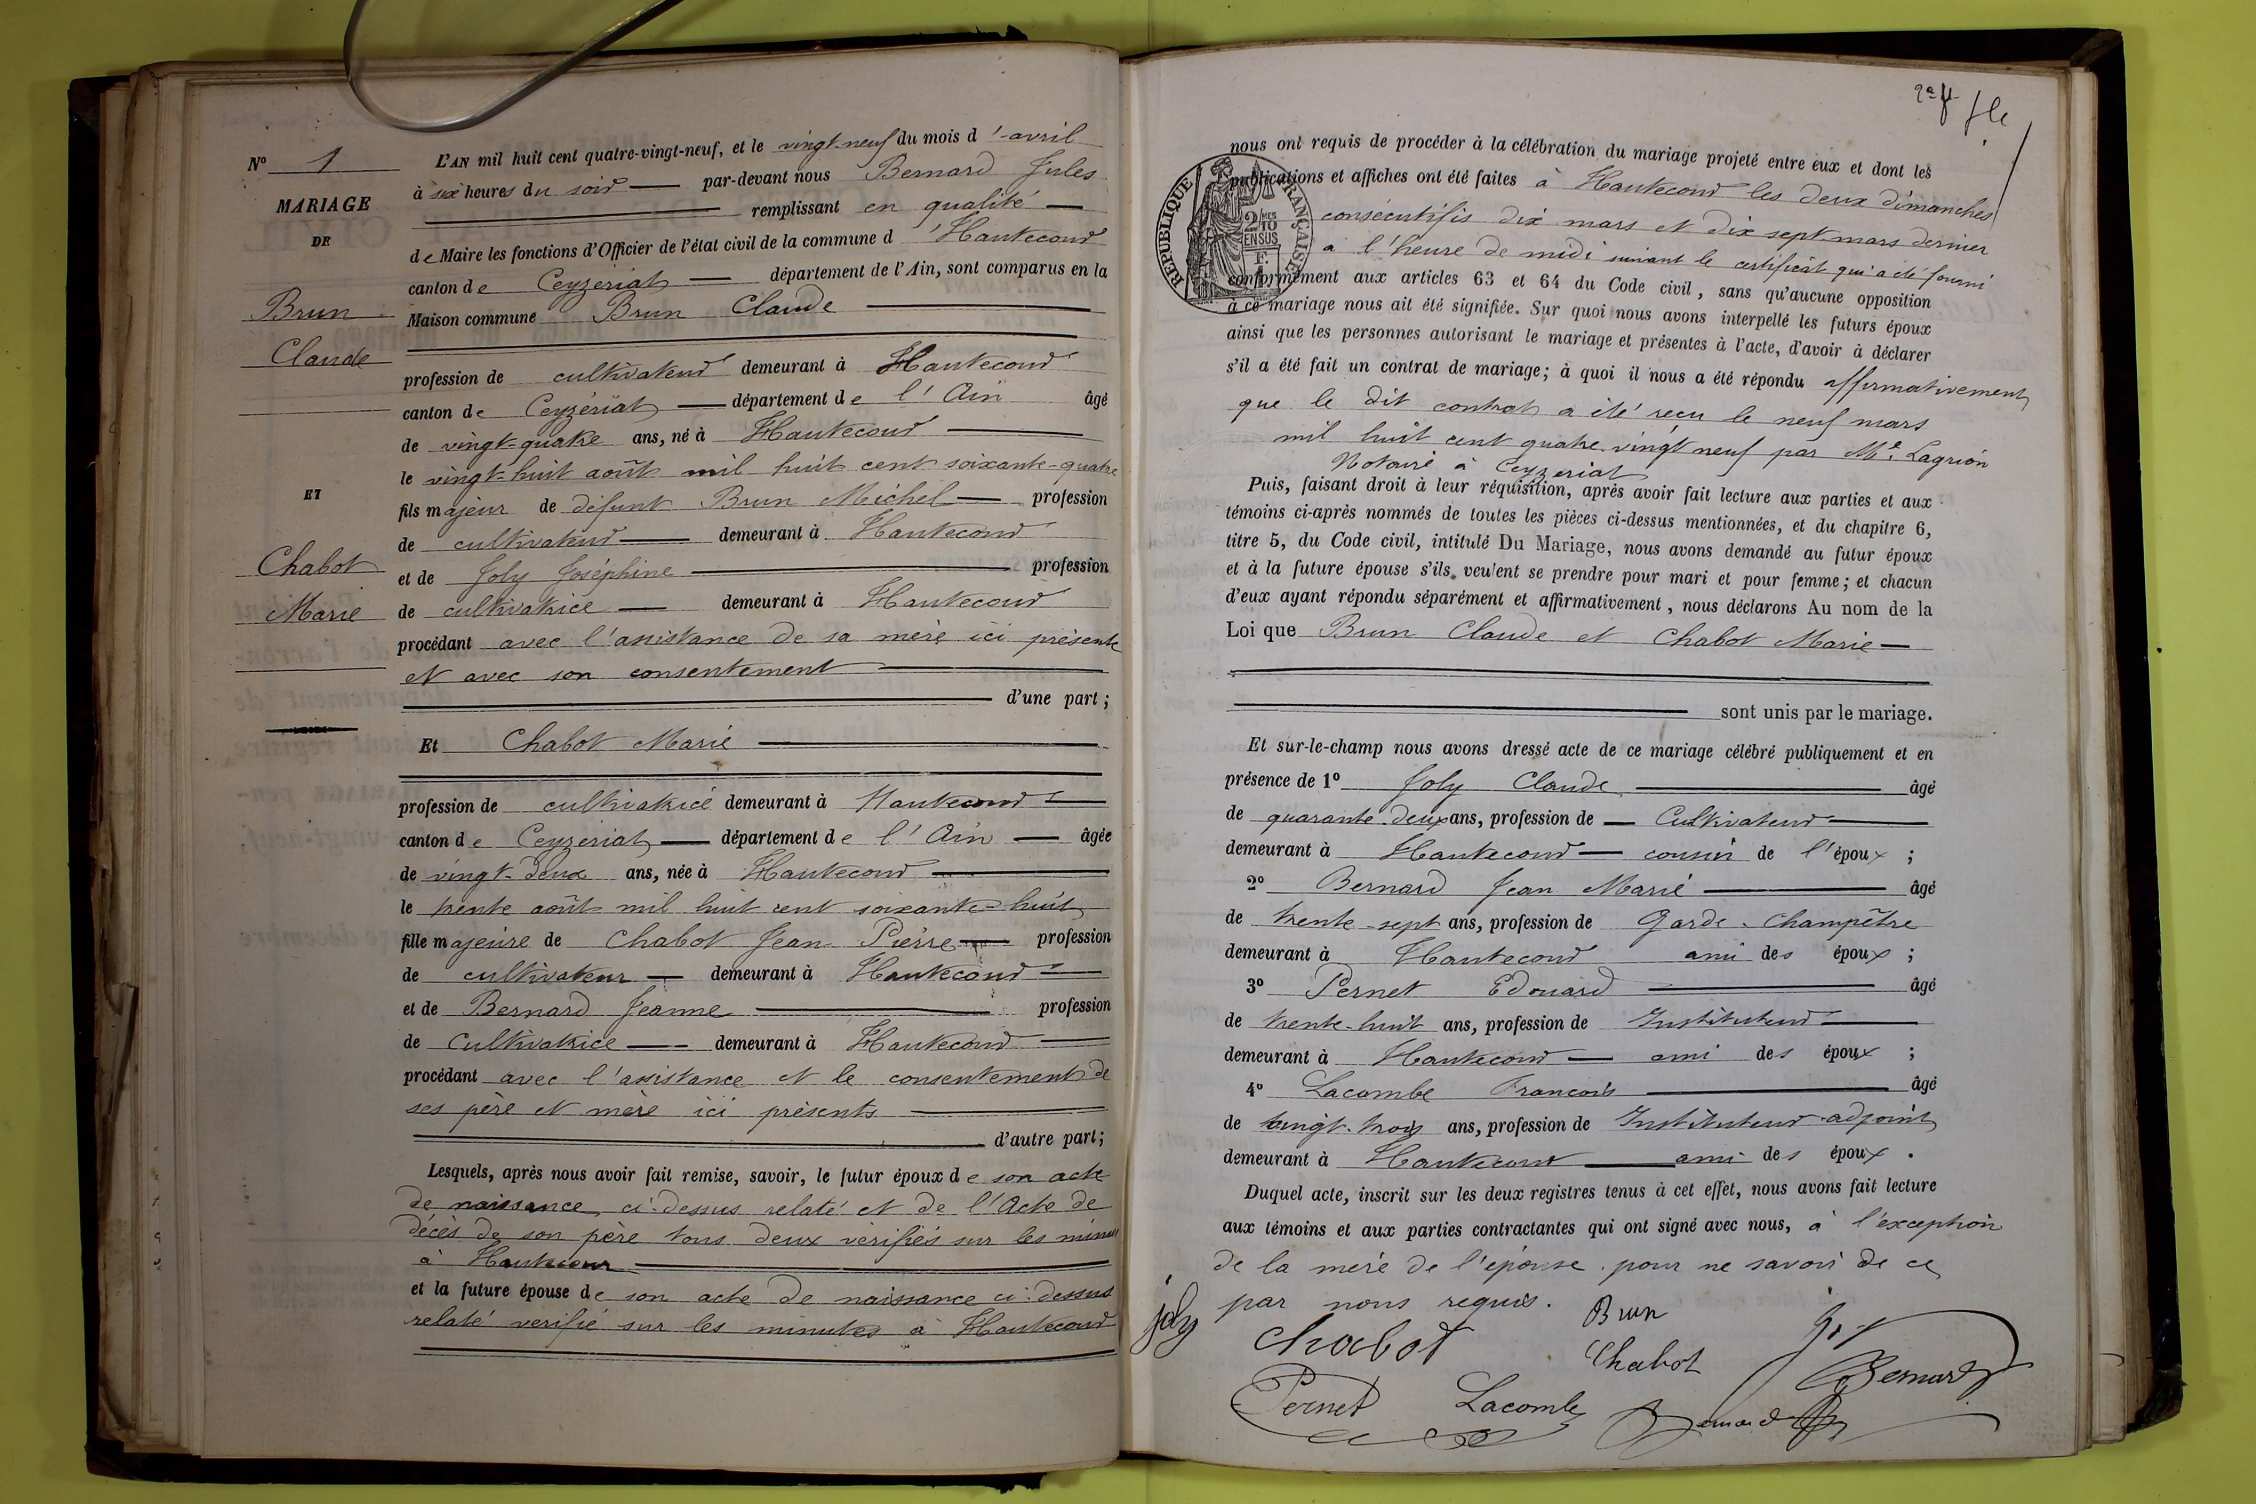 N° 1
MARIAGE
DE
Brun
Claude
ET
Chabot
Marie
L'AN mil huit cent quatre-vingt-neuf, et le vingt-neuf du mois d'avril
à six heures du soir par-devant nous Bernard Jules
remplissant en qualité
de Maire les fonctions d'Officier de l'état civil de la commune d'Hautecour
canton de Ceyzeriat département de l'Ain, sont comparus en la
Maison commune Brun Claude
profession de cultivateur demeurant à Hautecour
canton de Ceyzériat département de l'Ain âgé
de vingt-quatre ans, né à Hautecour
le vingt-huit août mil huit cent soixante-quatre
fils majeur de défunt Brun Michel profession
de cultivateur demeurant à Hautecour
et de Joly Joséphine profession
de cultivatrice demeurant à Hautecour
procédant avec l'assistance de sa mère ici présente
et avec son consentement
d'une part;
Et Chabot Marie
profession de cultivatrice demeurant à Hautecour
canton de Ceyzeriat département de l'Ain âgée
de vingt-deux ans, née à Hautecour
le trente août mil huit cent soixante-huit
fille majeure de Chabot Jean Pierre profession
de cultivateur demeurant à Hautecour
et de Bernard Jeanne profession
de Cultivatrice demeurant à Hautecour
procédant avec l'assistance et le consentement de
ses père et mère ici présents
d'autre part;
Lesquels, après nous avoir fait remise, savoir, le futur époux de son acte
de naissance ci-dessus relaté et de l'Acte de
décès de son père tous deux vérifiés sur les minutes
à Hautecour
et la future épouse de son acte de naissance ci-dessus
relaté vérifié sur les minutes à Hautecour
nous ont requis de procéder à la célébration du mariage projeté entre eux et dont les
publications et affiches ont été faites à Hautecour les deux dimanches
consécutifs dix mars et dix sept mars dernier
à l'heure de midi suivant le certificat qui a été fourni
RÉPUBLIQUE FRANÇAISE
2/10 EN SUS
conformément aux articles 63 et 64 du Code civil, sans qu'aucune opposition
à ce mariage nous ait été signifiée. Sur quoi nous avons interpellé les futurs époux
ainsi que les personnes autorisant le mariage et présentes à l'acte, d'avoir à déclarer
s'il a été fait un contrat de mariage; à quoi il nous a été répondu affirmativement
que le dit contrat a été reçu le neuf mars
mil huit cent quatre vingt neuf par Me. Lagrion
Notaire à Ceyzeriat
Puis, faisant droit à leur réquisition, après avoir fait lecture aux parties et aux
témoins ci-après nommés de toutes les pièces ci-dessus mentionnées, et du chapitre 6,
titre 5, du Code civil, intitulé Du Mariage, nous avons demandé au futur époux
et à la future épouse s'ils veulent se prendre pour mari et pour femme; et chacun
d'eux ayant répondu séparément et affirmativement, nous déclarons Au nom de la
Loi que Brun Claude et Chabot Marie
sont unis par le mariage.
Et sur-le-champ nous avons dressé acte de ce mariage célébré publiquement et en
présence de 1° Joly Claude âgé
de quarante-deux ans, profession de Cultivateur
demeurant à Hautecour cousin de l'époux;
2° Bernard Jean Marie âgé
de trente-sept ans, profession de Garde-Champêtre
demeurant à Hautecour ami des époux;
3° Pernet Edouard âgé
de trente-huit ans, profession de Instituteur
demeurant à Hautecour ami des époux;
4° Lacombe Francois âgé
de vingt-trois ans, profession de Instituteur-adjoint
demeurant à Hautecour ami des époux.
Duquel acte, inscrit sur les deux registres tenus à cet effet, nous avons fait lecture
aux témoins et aux parties contractantes qui ont signé avec nous, à l'exception
de la mère de l'épouse pour ne savoir de ce
par nous requis.
joly Chabot Brun
Chabot Bernard
Pernet Lacombe Bernard